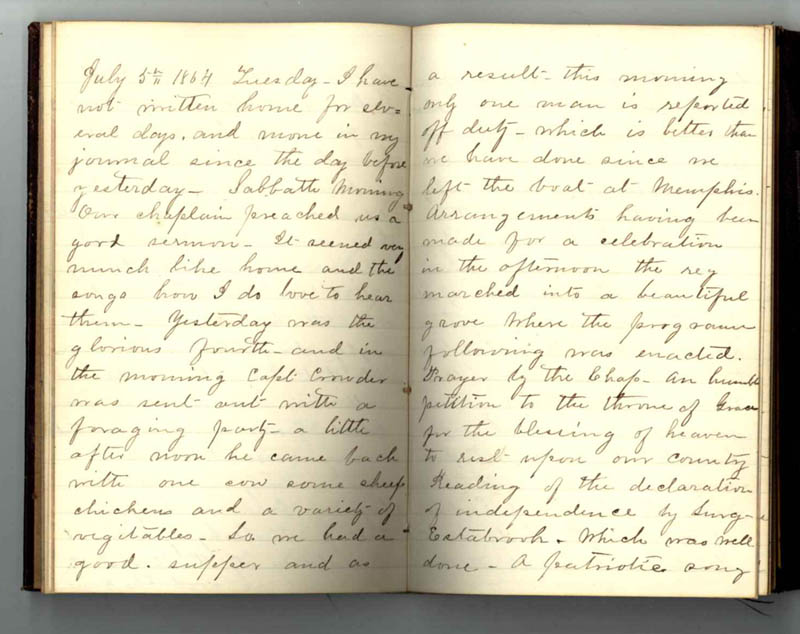 July 5th 1864 Tuesday - I have
not written home for sev=
eral days. and none in my
journal since the day before
yesterday - Sabbath Morning
Our chaplain preached us a
good sermon - It seemed very
much like home and the
songs how I do love to hear
them - Yesterday was the
glorious fourth - and in
the morning Capt Crowder
was sent out with a
foraging party - a little
after noon he came back
with one cow some sheep
chickens and a variety of
vigitables - So we had a
good. supper and as
a result - this morning
only one man is reported
off duty - which is better than
we have done since we
left the boat at Memphis.
Arrangements having been
made for a celebration
in the afternoon the reg
marched into a beautiful
grove where the programm
following was enacted.
Prayer by the Chap - An humble
petition to the throne of Grace
for the blessing of heaven
to rest upon our country
Reading of the declaration
of independence by Surg -
Estabrook - Which was well
done - A patriotic song